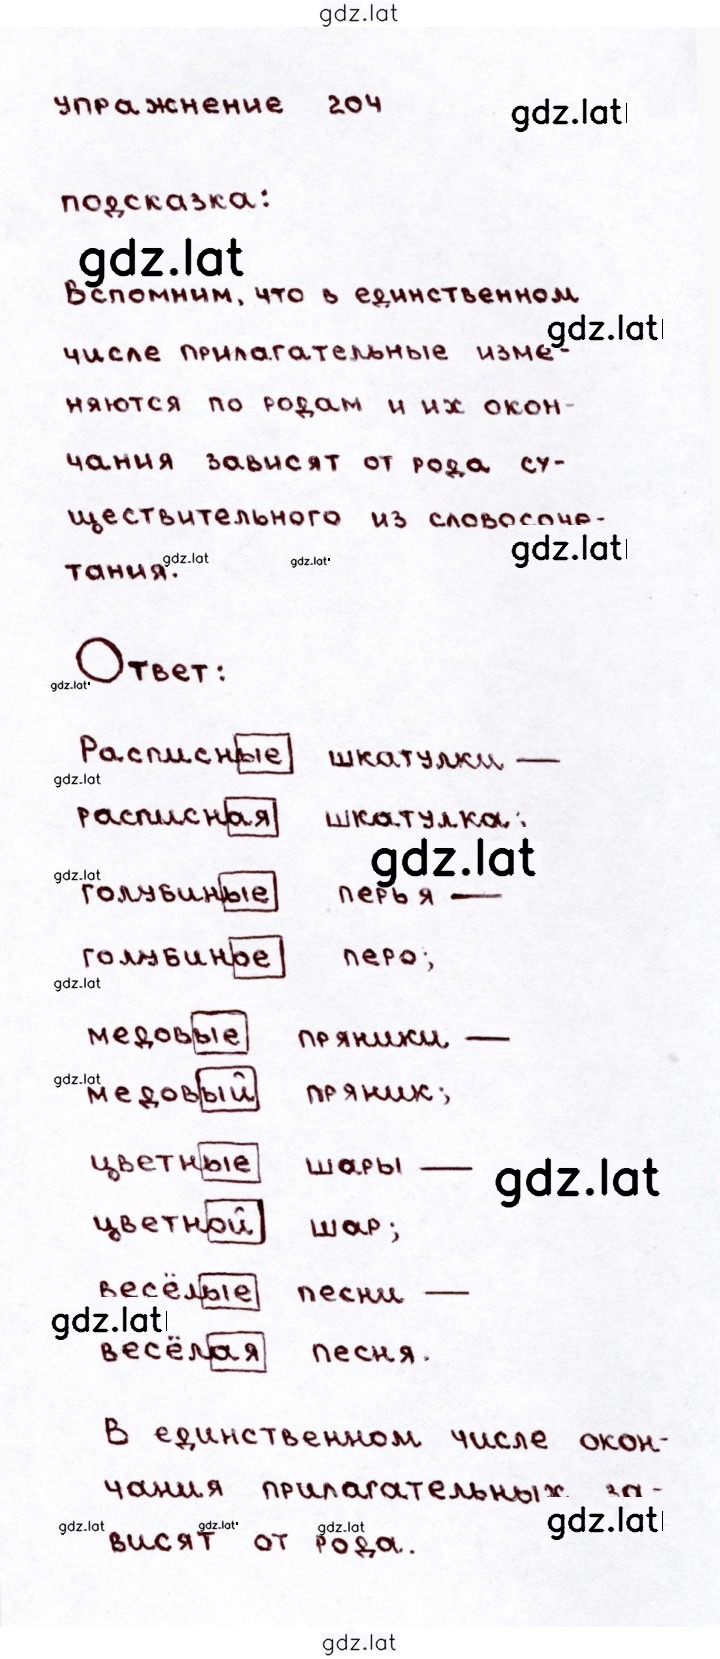 gdz.lat
упражнение 204
gdz.lat
подсказка:
gdz.lat
Вспомним, что в единственном
gdz.lat
числе прилагательные изме-
няются по родам и их окон-
чания зависят от рода су-
ществительного из словосоче-
gdz.lat
тания.
gdz.lat gdz.lat
Ответ:
gdz.lat
Расписные шкатулки —
gdz.lat
расписная шкатулка;
gdz.lat
gdz.lat
голубиные перья —
голубиное перо;
gdz.lat
медовые пряники —
gdz.lat
медовый пряник;
цветные шары —
gdz.lat
цветной шар;
весёлые песни —
gdz.lat
весёлая песня.
В единственном числе окон-
чания прилагательных за-
gdz.lat
gdz.lat gdz.lat gdz.lat
висят от рода.
gdz.lat